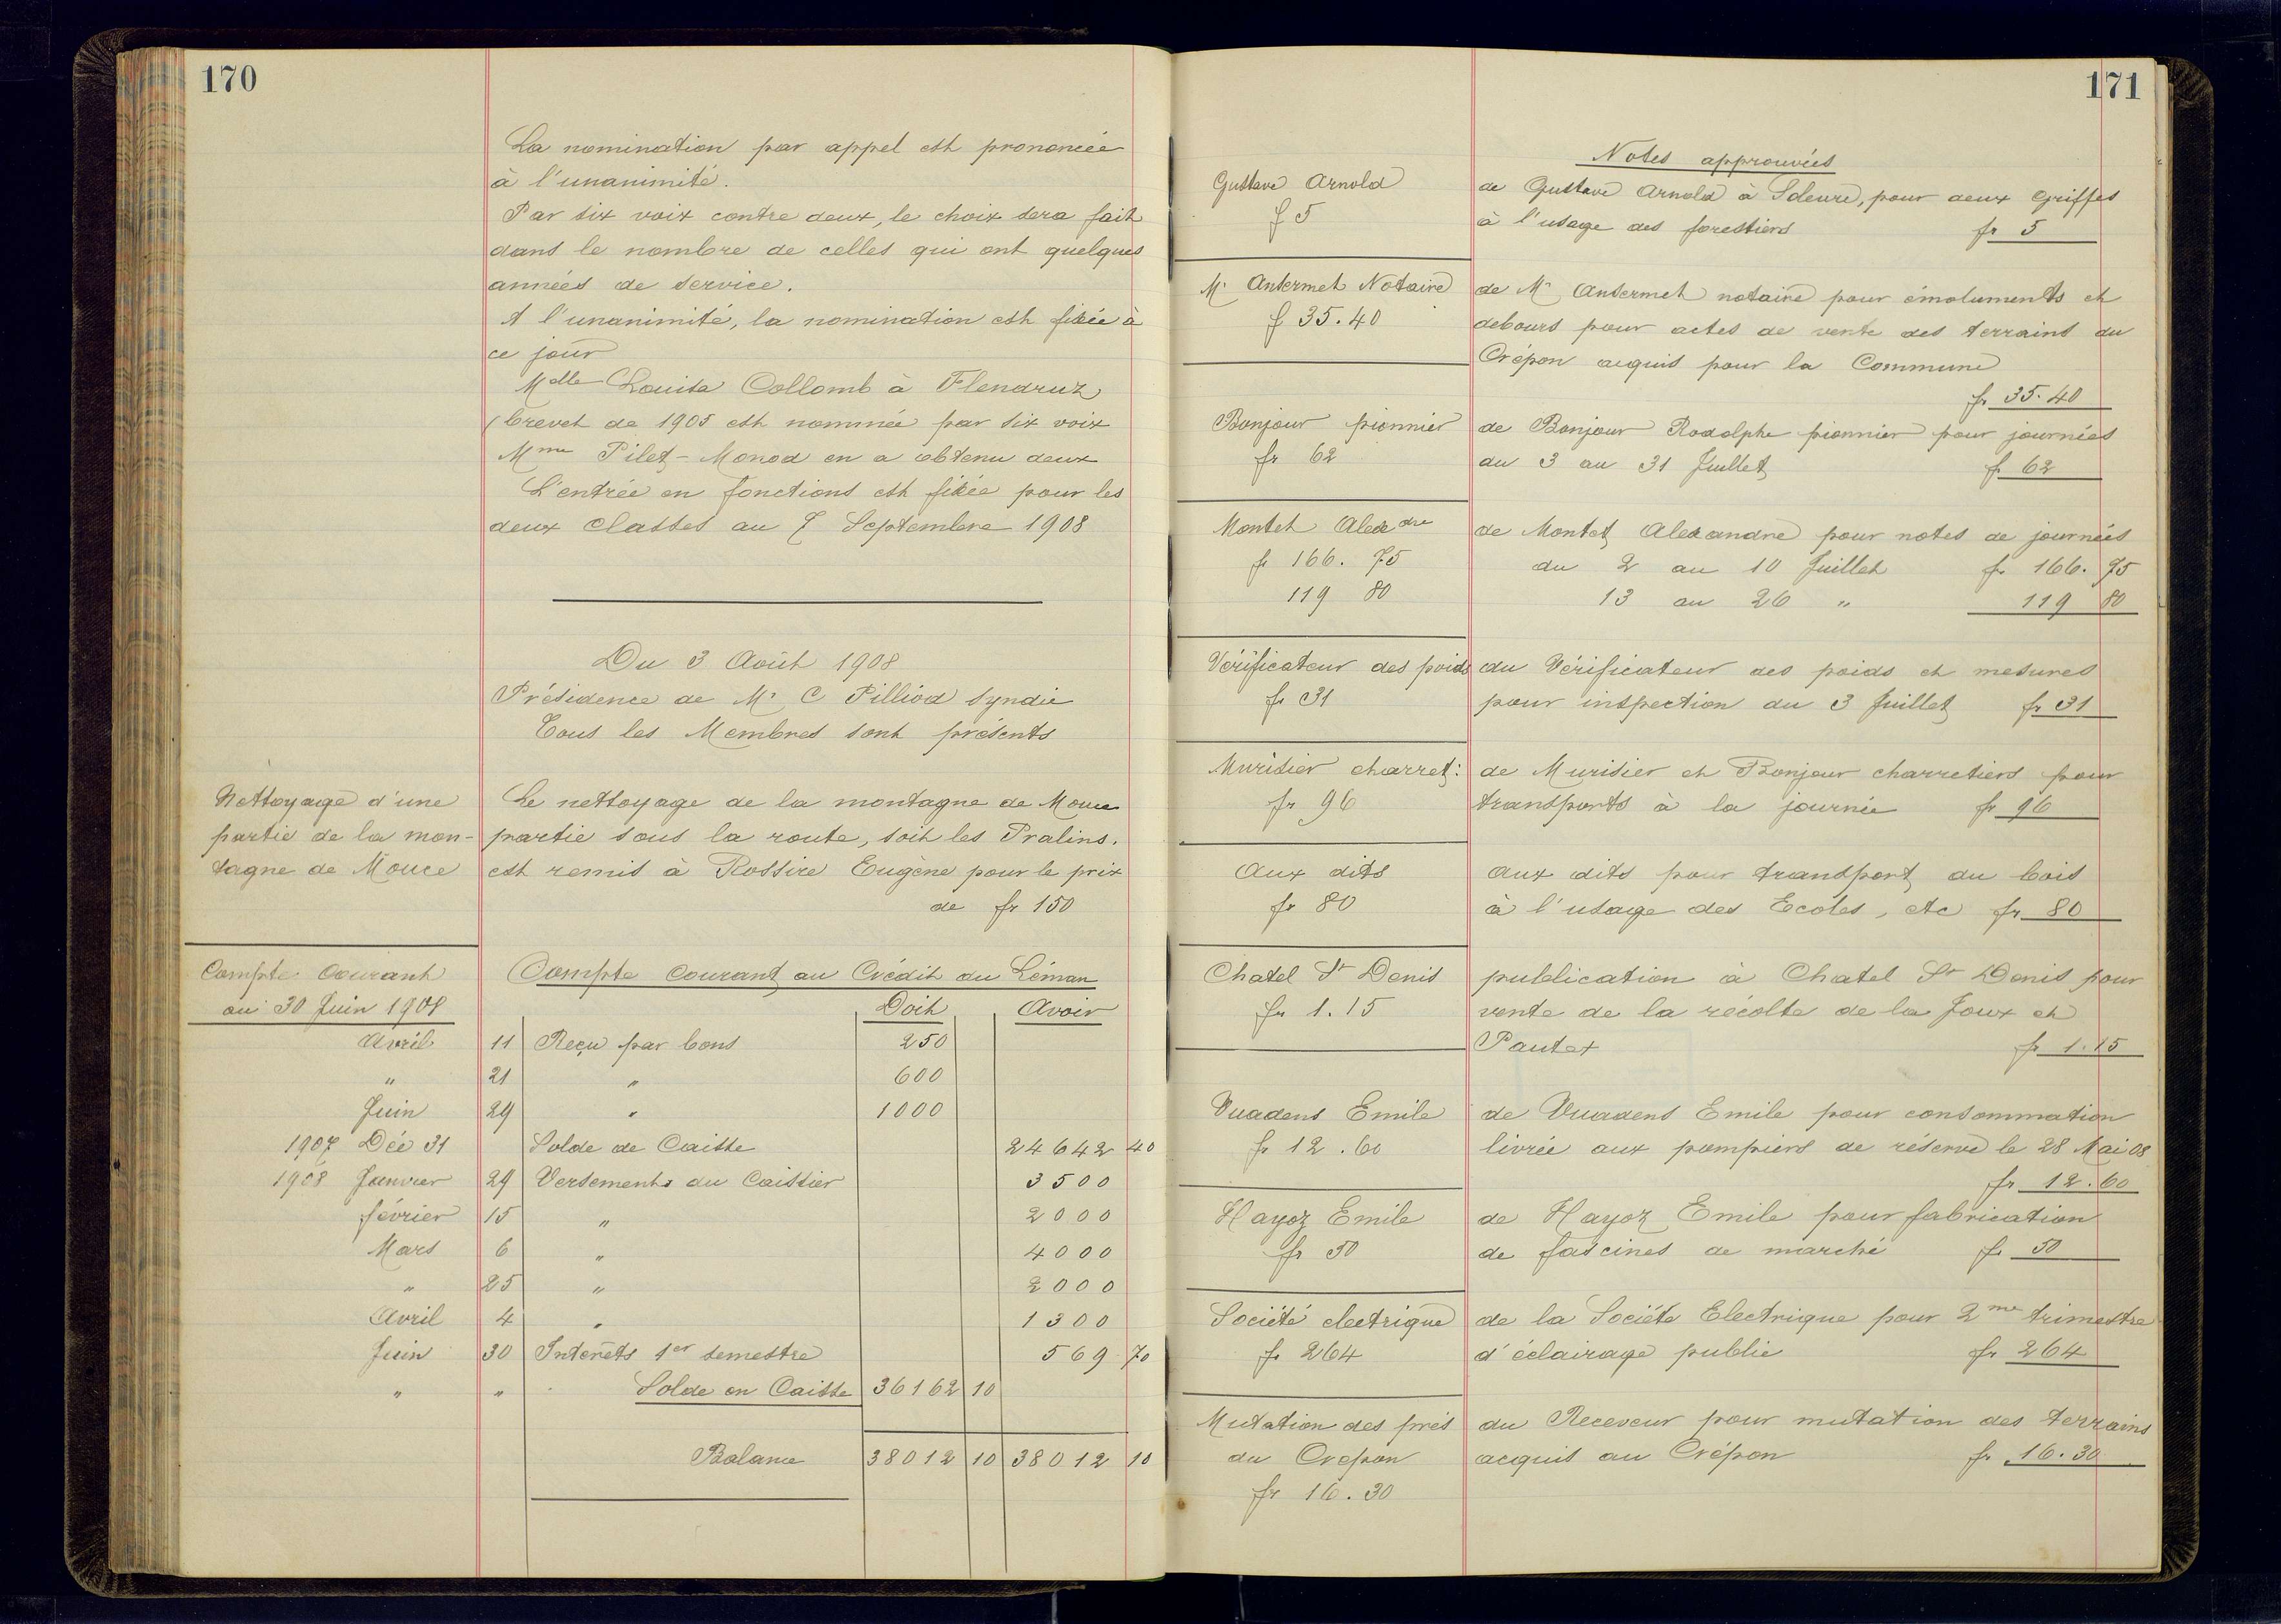 170
La nomination par appel est prononcée
à l'unanimité.
Par six voix contre deux, le choix sera fait
dans le nombre de celles qui ont quelques
années de service.
A l'unanimité, la nomination est fixée à
ce jour
Melle Louisa Collomb à Flendruz
(brevet de 1905 est nommée par six voix
Mme Pilet-Monod en a obtenu deux
L'entrée en fonctions est fixée pour les
deux classes au 7 Septembre 1908
Du 3 Août 1908
Présidence de Mr C Pilliod Syndic
Tous les Membres sont présents
Nettoyage d'une
partie de la mon-
tagne de Mouce
Le nettoyage de la montagne de Mouce
partie sous la route, soit les Pralins.
est remis à Rossire Eugène pour le prix
de fr 150
Compte Courant
au 30 Juin 1908
Compte Courant au Crédit du Léman
Doit Avoir
Avril 11 Reçu par bons 250
" 21 " 600
Juin 29 " 1000
1907 Déc 31 Solde de Caisse 24642 40
1908 Janvier 29 Versements du Caissier 3500
février 15 " 2000
Mars 6 " 4000
" 25 " 2000
Avril 4 " 1300
Juin 30 Interêts 1er semestre 569 70
" " Solde en Caisse 36162 10
Balance 38012 10 38012 10
171
Notes approuvées
Gustave Arnold
f 5
de Gustave Arnold à Soleure, pour deux griffes
à l'usage des forestiers fr 5
Mr Ansermet Notaire
f 35.40
de Mr Ansermet notaire pour émoluments et
debours pour actes de vente des terrains du
Crépon acquis pour la Commune
fr 35.40
Bonjour pionnier
fr 62
de Bonjour Rodolphe pionnier pour journées
du 3 au 31 Juillet fr 62
Montet Alexdre
fr 166.75
119 80
de Montet Alexandre pour notes de journées
du 2 au 10 Juillet fr 166.75
13 au 26 " 119 80
Vérificateur des poids
fr 31
du Vérificateur des poids et mesures
pour inspection du 3 Juillet fr 31
Murisier charret:
fr 96
de Murisier et Bonjour charretiers pour
transports à la journée fr 96
Aux dits
fr 80
aux dits pour transport du bois
à l'usage des Ecoles, etc fr 80
Chatel St Denis
fr 1.15
publication à Chatel St Denis pour
vente de la récolte de la Joux et
Pautex fr 1.15
Vuadens Emile
fr 12.60
de Vuadens Emile pour consommation
livrée aux pompiers de réserve le 28 Mai 08
fr 12.60
Hayoz Emile
fr 50
de Hayoz Emile pour fabrication
de fascines de marché fr 50
Société electrique
fr 264
de la Société Electrique pour 2me trimestre
d'éclairage public fr 264
Mutation des prés
du Crepon
fr 16.30
du Receveur pour mutation des terrains
acquis au Crépon fr 16.30